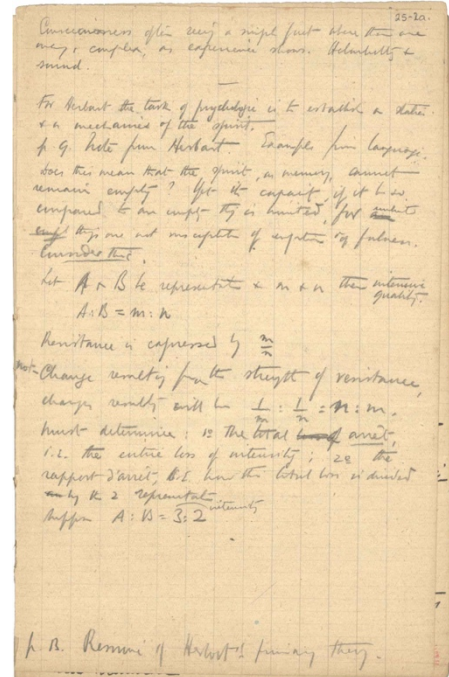 25-20.
Consciousness often being a simple fact where there are
many & complex, as experience shows. Helmholtz &
sound.
For Herbart the task of psychologie is to establish a static
& a mechanics of the spirit.
p. 9. Note from Herbart Example from language.
Does this mean that the spirit, as memory, cannot
remain empty? Yet its capacity, if it be
compared to an empty thg is limited, for
thgs are not susceptible of emptiness or fulness.
Consider this.
Let A & B be representations & m & n their intensive
quality.
A : B = m : n
Resistance is expressed by m/n
Change resulting from the strength of resistance,
changes resulty will be 1/m : 1/n = n : m.
must determine : 1º the total arrêt,
i.e. the entire loss of intensity ; 2º the
rapport d'arrêt, i.e. how this total loss is divided
by the 2 representations
Suppose A : B = 3 : 2 intensity
p. B. Résumé of Herbart's primary theory.